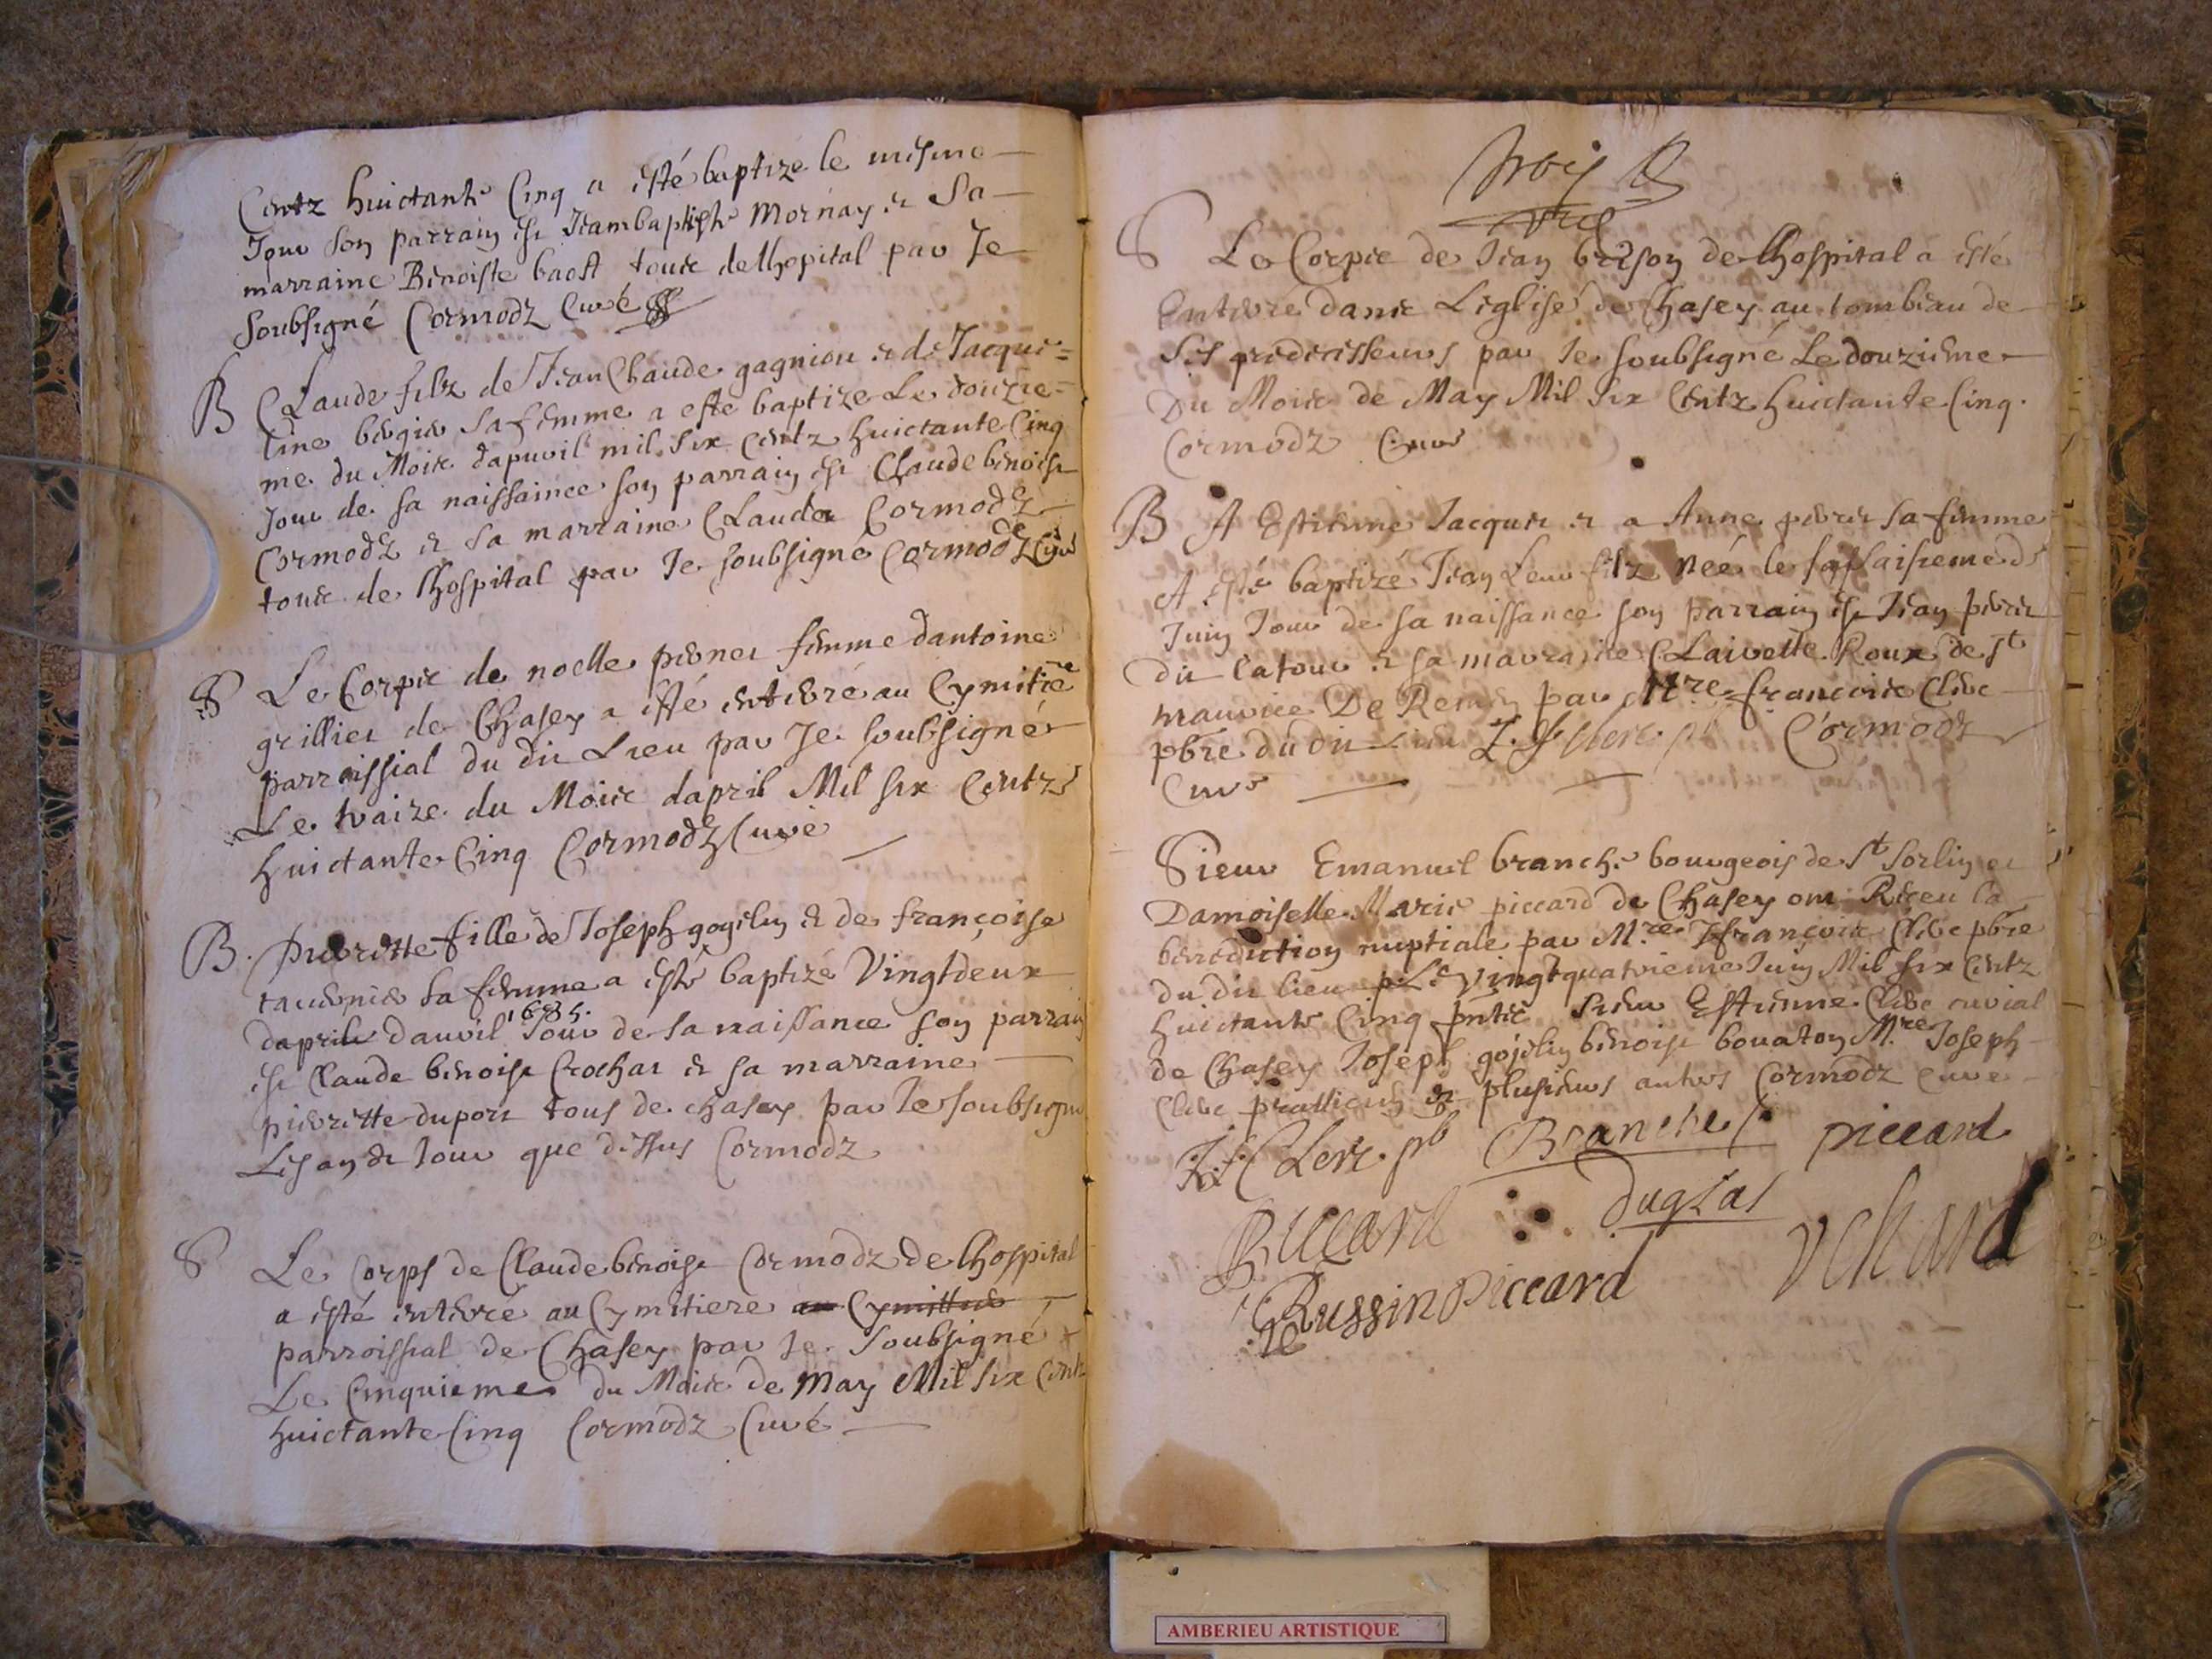 Centz huictante Cinq a esté baptizé le mesme
Jour son parrain est Jeambaptiste Mornay et sa
marraine Benoiste baost touts de lhopital par Je
Soubsigné Cormodz Curé
B Claude filz de Jean Claude gagniou et de Jacque=
line bergier sa femme a esté baptize Le douzie=
me du Moice dapuril mil six Centz huictante Cinq
Jour de sa naissaince son parrain est Claude benoist
Cormodz et sa marraine Clauda Cormodz
touts de lhospital par Je soubsigné Cormodz Curé
S Le Corps de noelle femme dantoine
grillier de Chasey a esté enterré au Cymitiere
parroissial du dit Lieu par Je soubsigné
Le traize du Moice dapril Mil six Centz
huictante Cinq Cormodz Curé
B. Pierrette fille de Joseph gogelin et de françoise
sa femme a esté baptizé Vingtdeux
dapril dauril 1685. Jour de sa naissance son parrain
est Claude benoist Crochat et sa marraine
pierrette duport tous de chasey par Je soubsigné
Les an et Jour que dessus Cormodz
S Le Corps de Claude benoist Cormodz de lhospital
a esté enterré au Cymitiere au Cymittiere
parroissial de Chasey par Je Soubsigné
Le Cinquieme du Moice de May Mil six Centz
huictante Cinq Cormodz Curé
trois
S Le Corps de Jean brison de lhospital a esté
Enterré dans Leglise de Chasey au tombeau de
Ses predecisseurs par Je soubsigné Le douzieme
Du Moice de May Mil Six Centz huictante Cinq.
Cormodz Curé
B A Estienne Jacquet et a Anne sa femme
A esté baptizé Jean Leur filz Née le
Juin Jour de sa naissance son parrain est Jean
dit Latour et sa marraine Clairette Roux de St
maurice De Remens par Mre francoise Clerc
pbre du dit Lieu J. f Clerc pb Cormodz
Curé
Sieur Emanuel branche bourgeois de St Sorlin et
Damoiselle Marie piccard de Chasey ont Receu la
benediction nuptiale par Mre Jfrançois Clerc pbre
du dit lieu Le vingtquatrieme Juin Mil six Centz
huictante Cinq pntes Sieur Estienne Clerc curial
de Chasey Joseph gojelin benoist bouaton Mre Joseph
Clerc praticien et plusieurs autres Cormodz Curé
J.f Clerc. pb Branche piccard
Piccard duglas
Vchard
Russin Piccard
AMBERIEU ARTISTIQUE